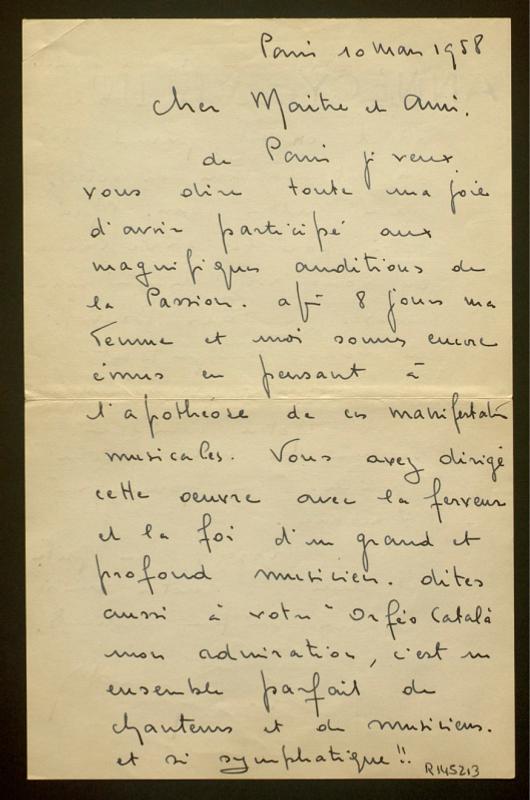 Paris 10 Mars 1958
Cher Maitre et Ami.
de Paris je veux
vous dire toute ma joie
d'avoir participé aux
magnifiques auditions de
la Passion. après 8 jours ma
femme et moi sommes encore
émus en pensant à
l'apothéose de ces manifestations
musicales. Vous avez dirigé
cette oeuvre avec la ferveur
et la foi d'un grand et
profond musicien. dites
aussi à votre "Orféo Català
mon admiration, c'est un
ensemble parfait de
chanteurs et de musiciens.
et si symphatique !!
R.145213